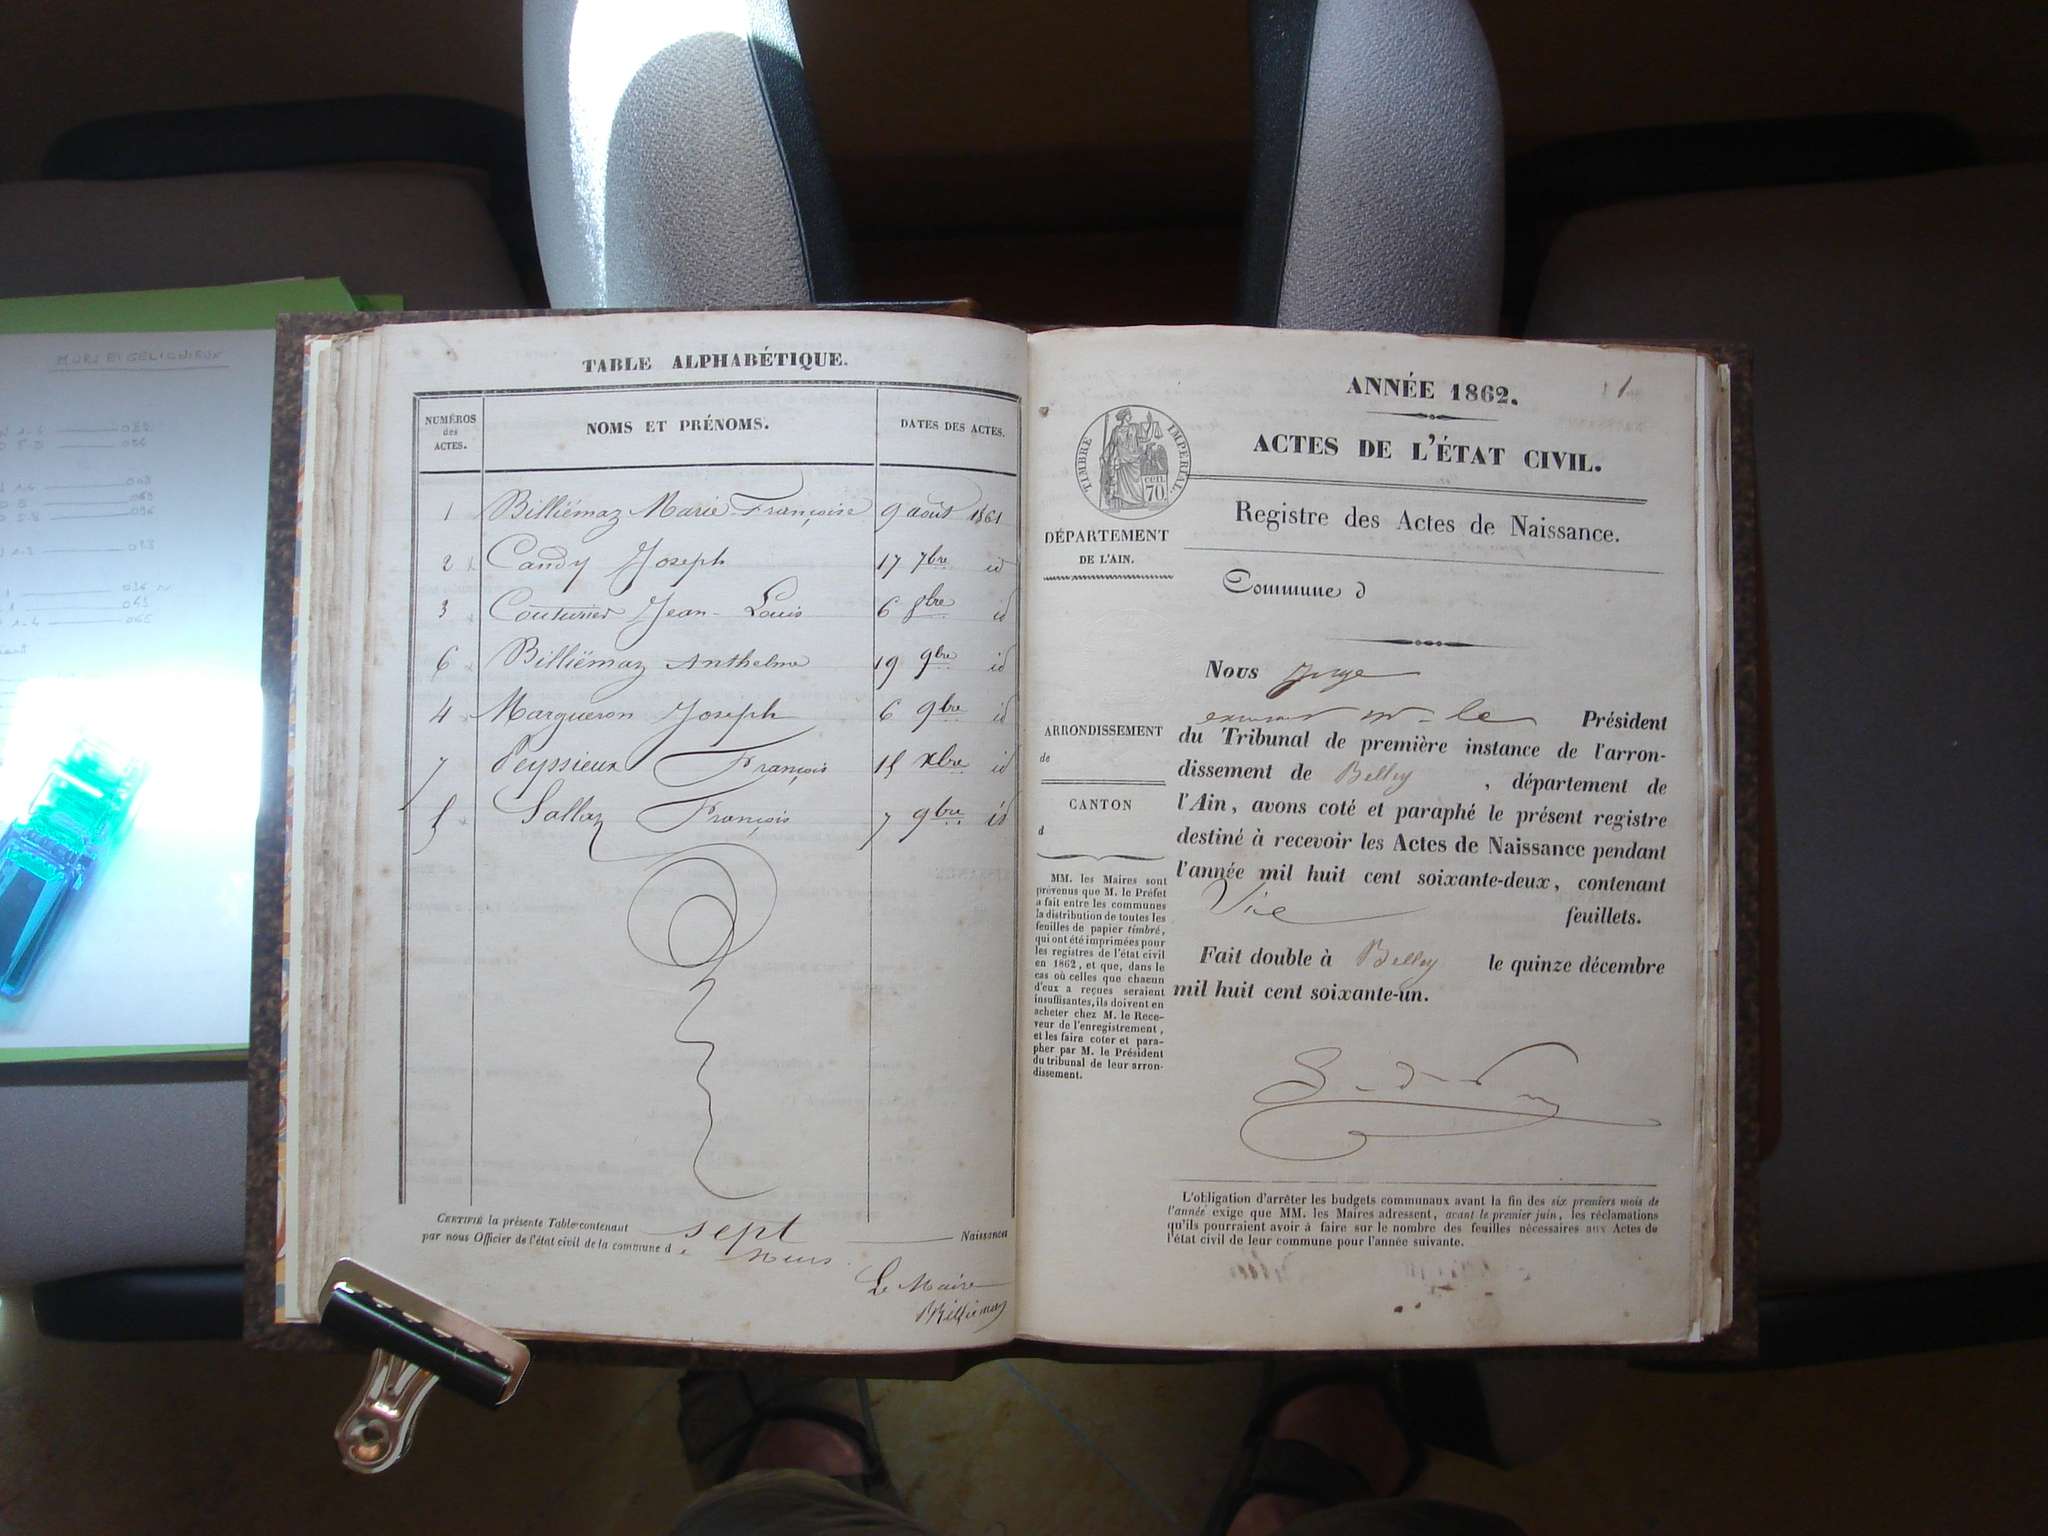 MURS ET GELIGNIEUX
TABLE ALPHABÉTIQUE.
NUMÉROS des ACTES. NOMS ET PRÉNOMS. DATES DES ACTES.
1 Billiémaz Marie Françoise 9 août 1861
2 Candy Joseph 17 7bre id
3 Couturier Jean-Louis 6 8bre id
6 Billiémaz Anthelme 19 9bre id
4 Margueron Joseph 6 9bre id
7 Peyssieux François 15 Xbre id
5 Sallaz François 7 9bre id
CERTIFIÉ la présente Table contenant sept Naissances
par nous Officier de l'état civil de la commune de Murs.
Le Maire
Billiémaz
ANNÉE 1862.
1
ACTES DE L'ÉTAT CIVIL.
TIMBRE IMPERIAL
CEN. 70.
Registre des Actes de Naissance.
DÉPARTEMENT
DE L'AIN.
Commune d
Nous juge
le Président
du Tribunal de première instance de l'arron-
dissement de Belley, département de
l'Ain, avons coté et paraphé le présent registre
destiné à recevoir les Actes de Naissance pendant
l'année mil huit cent soixante-deux, contenant
feuillets.
Fait double à Belley le quinze décembre
mil huit cent soixante-un.
ARRONDISSEMENT
de
CANTON
d
MM. les Maires sont
prévenus que M. le Préfet
a fait entre les communes
la distribution de toutes les
feuilles de papier timbré,
qui ont été imprimées pour
les registres de l'état civil
en 1862, et que, dans le
cas où celles que chacun
d'eux a reçues seraient
insuffisantes, ils doivent en
acheter chez M. le Rece-
veur de l'enregistrement,
et les faire coter et para-
pher par M. le Président
du tribunal de leur arron-
dissement.
L'obligation d'arrêter les budgets communaux avant la fin des six premiers mois de
l'année exige que MM. les Maires adressent, avant le premier juin, les réclamations
qu'ils pourraient avoir à faire sur le nombre des feuilles nécessaires aux Actes de
l'état civil de leur commune pour l'année suivante.